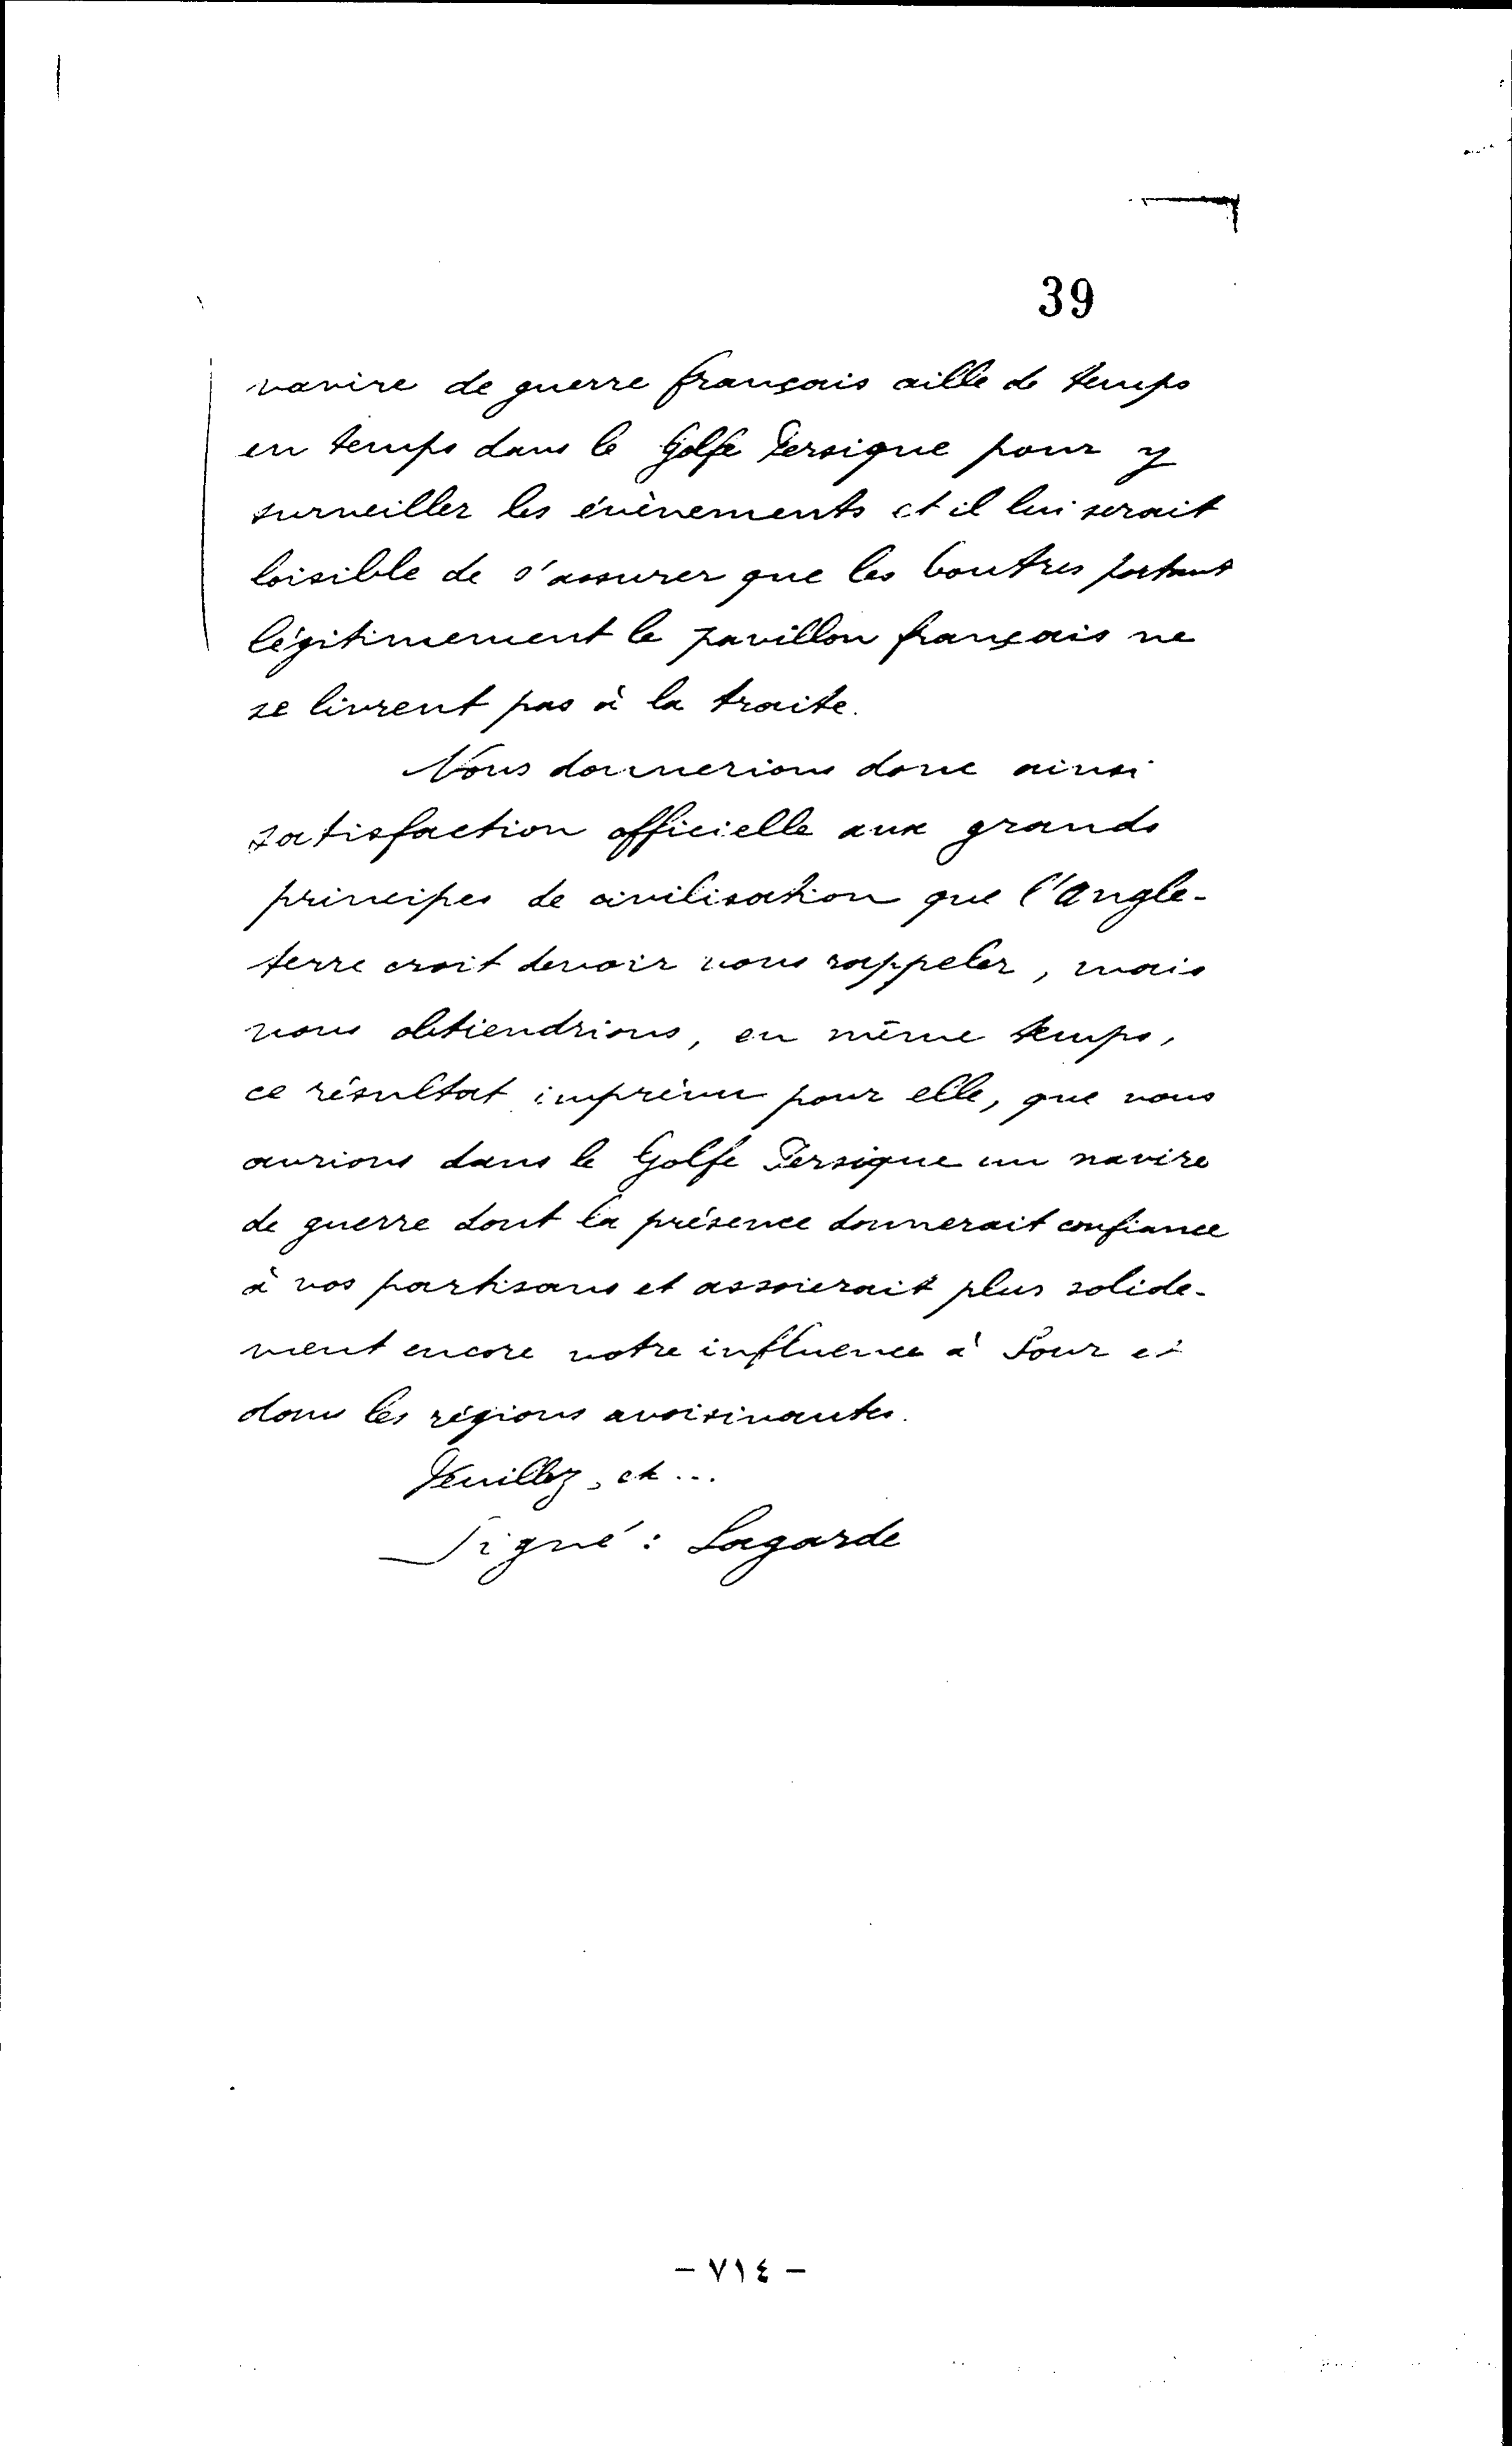 39
navire de guerre français aille de temps
en temps dans le Golfe Persique pour y
surveiller les évènements et il lui serait
loisible de s'assurer que les boutres portant
légitimement le pavillon français ne
se livrent pas à la traite.
Nous donnerions donc ainsi
satisfaction officielle aux grands
principes de civilisation que l'Angle-
terre croit devoir nous rappeler, mais
nous obtiendrions, en même temps,
ce résultat imprévu pour elle, que nous
aurions dans le Golfe Persique un navire
de guerre dont la présence donnerait confiance
à nos partisans et assoierait plus solide-
ment encore notre influence à Sour et
dans les régions avoisinantes.
Veuillez, etc...
Signé : Lagarde
- ٧١٤ -